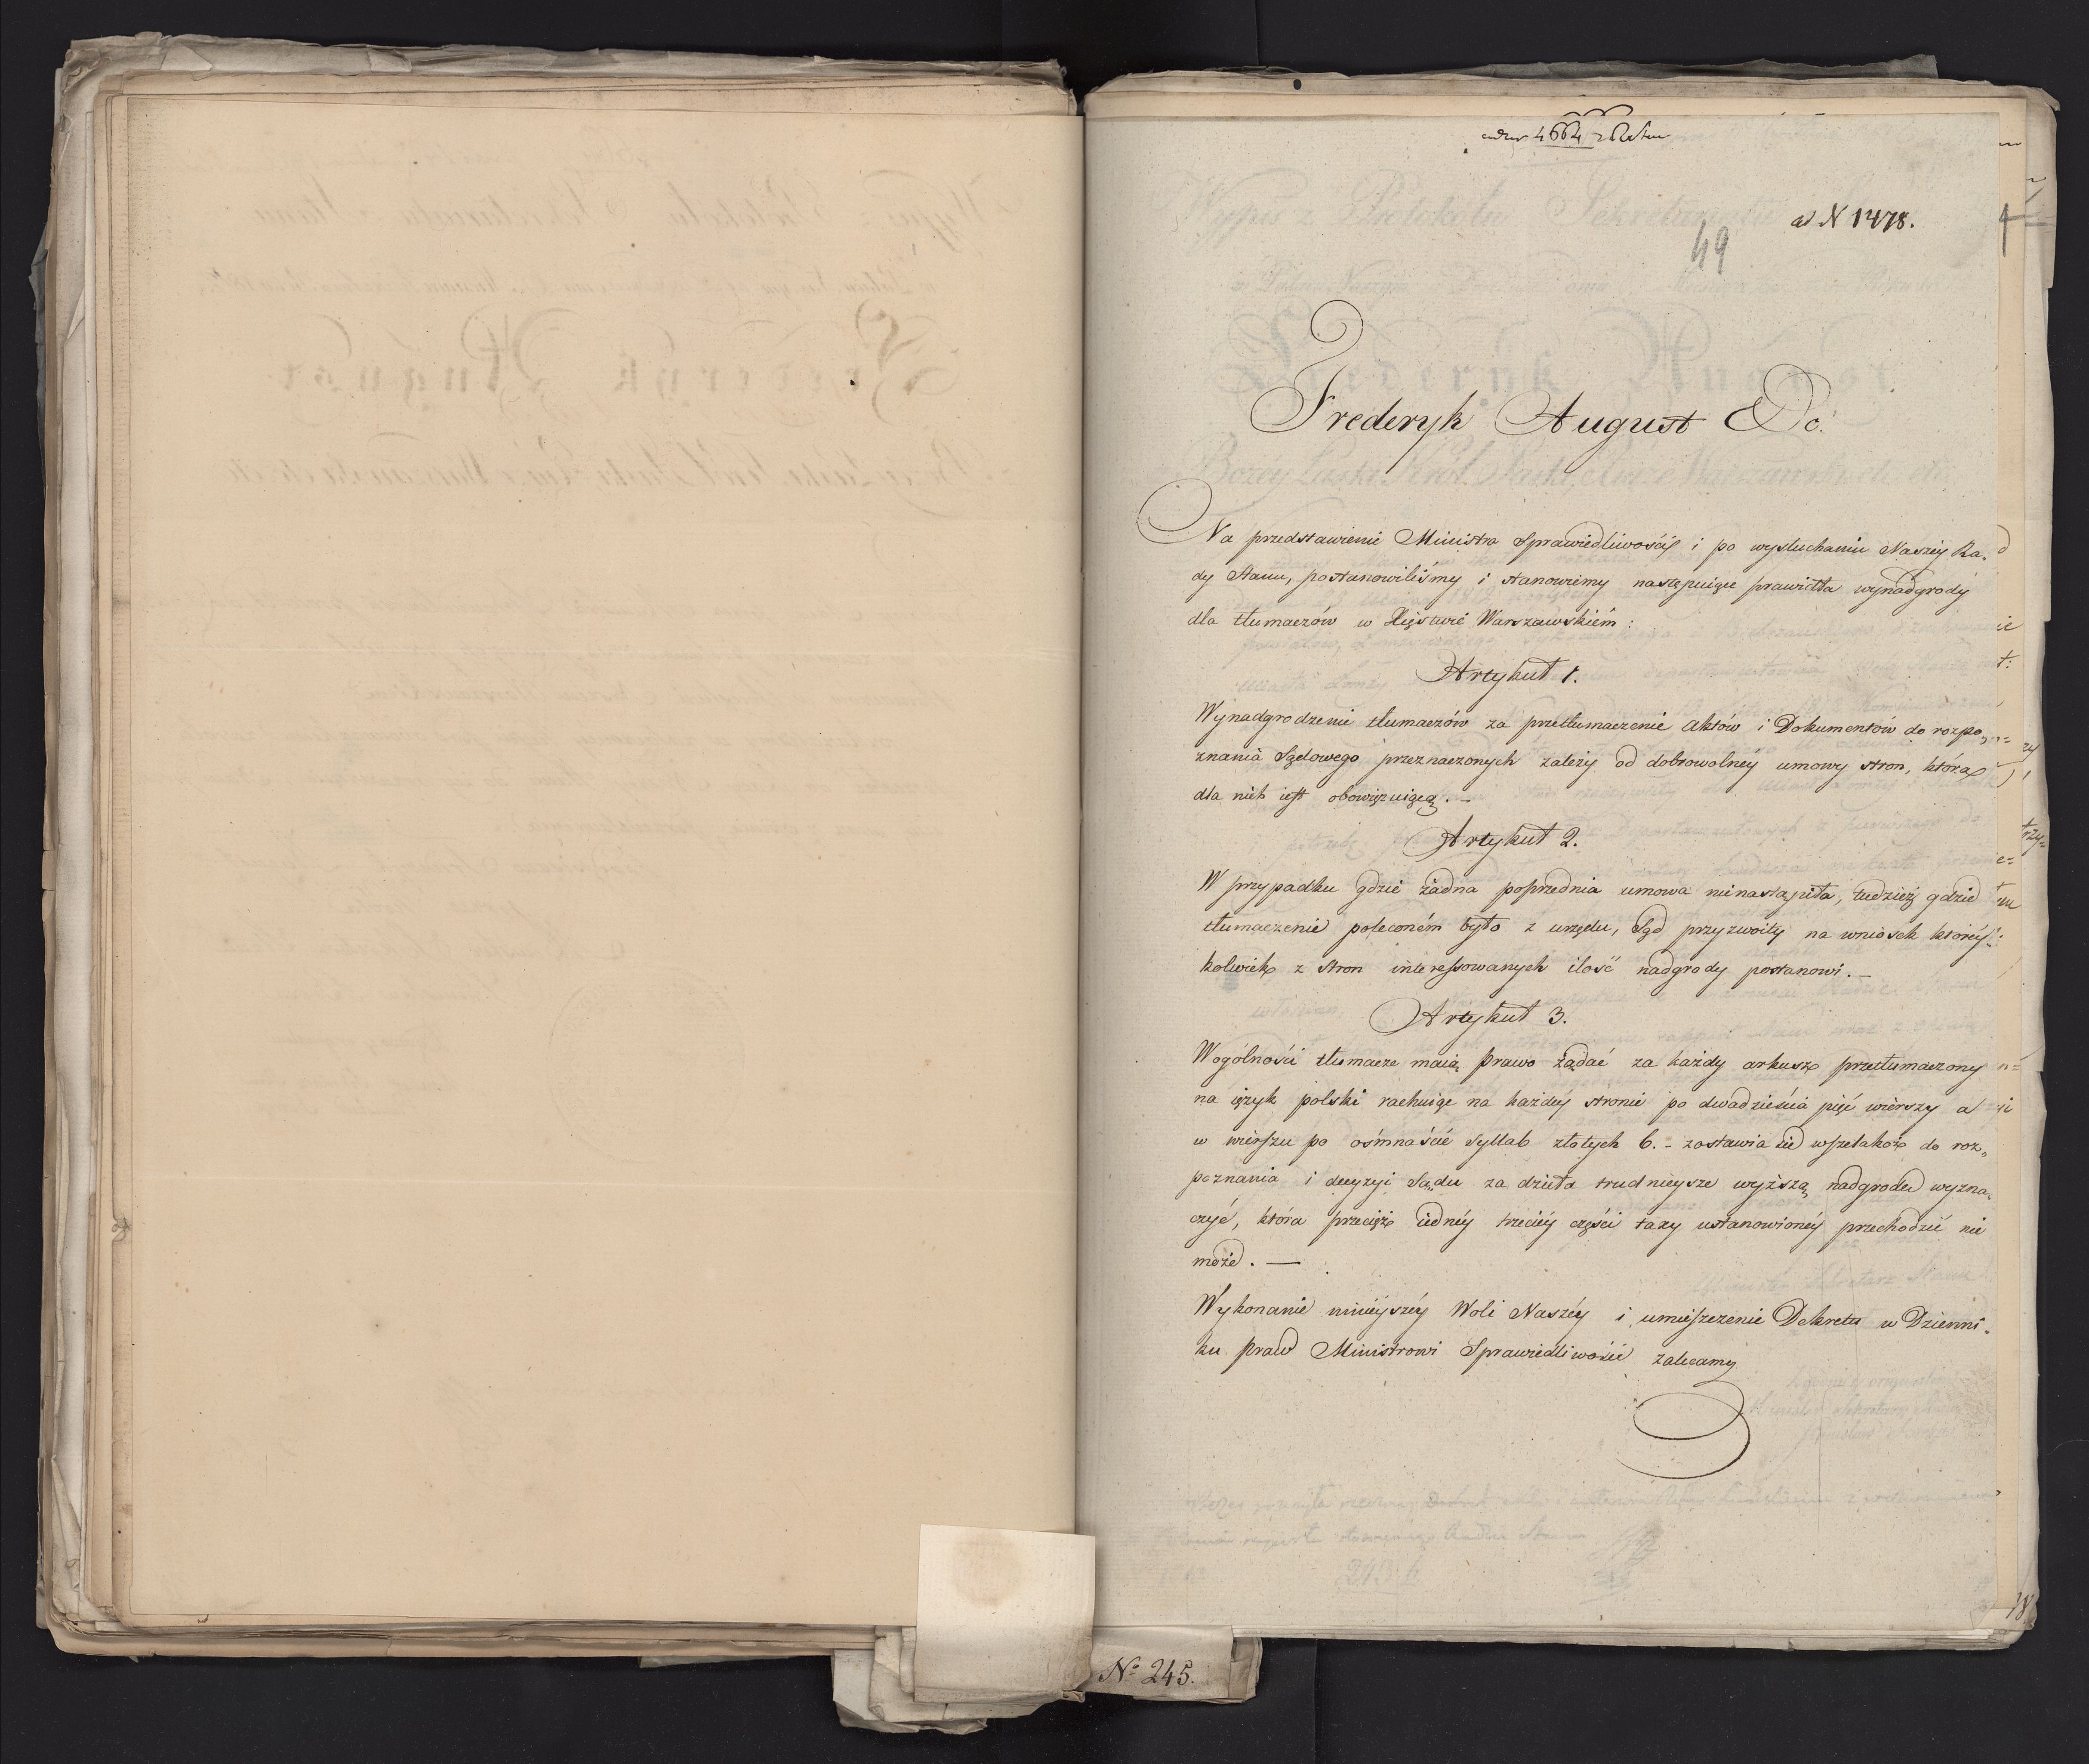 4664
ad N 1478.
49
Frederyk August &c.
Na przedstawienie Ministra Sprawiedliwości i po wysłuchaniu Naszéy Ra-
dy Stanu, postanowiliśmy i stanowiemy następuiące prawidła wynadgrody
dla tłumaczów w Xięstwie Warszawskiém:
Artykuł 1.
Wynadgrodzenie tłumaczów za przetłumaczenie Aktów i Dokumentów do rozpo„
znania Sądowego przeznaczonych zależy od dobrowolnéy umowy stron, która
dla nich iest obowięzuiącą. —
Artykuł 2.
W przypadku gdzie żadna poprzednia umowa nienastąpiła, tudzież gdzie
tłumaczenie poleconém było z urzędu, Sąd przyzwoity na wniosek któréy-
kolwiek z stron interessowanych ilość nadgrody postanowi. —
Artykuł 3.
Wogólności tłumacze maią prawo żądać za każdy arkusz przetłumaczony
na ięzyk polski rachuiąc na każdéy stronie po dwadzieścia pięć wierszy a
w wierszu po ośmnaście syllab złotych 6. - zostawia się wszelako do roz„
poznania i decyzyi Sądu za dzieła trudnieysze wyższą nadgrodę wyzna-
czyć, która przecięż iednéy trzeciéy części taxy ustanowionéy przechodzić nie
może. —
Wykonanie ninieyszéy Woli Naszéy i umieszczenie Dekretu w Dzienni-
ku praw Ministrowi Sprawiedliwości zalecamy
No 245.